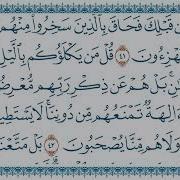 ن قَبْلِكَ فَحَاقَ بِٱلَّذِينَ سَخِرُوا۟ مِنْهُم
هْزِءُونَ ٤١ قُلْ مَن يَكْلَؤُكُم بِٱلَّيْلِ
نِۗ بَلْ هُمْ عَن ذِكْرِ رَبِّهِم مُّعْرِضُ
ءَالِهَةٌ تَمْنَعُهُم مِّن دُونِنَاۚ لَا يَسْتَطِيـ
وَلَا هُم مِّنَّا يُصْحَبُونَ ٤٣ بَلْ مَتَّعْنَا